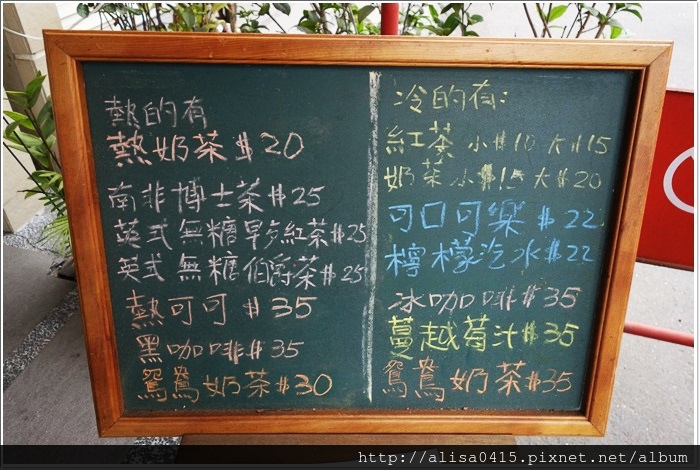 熱的有
熱奶茶 $20
南非博士茶 $25
英式無糖早多紅茶 $25
英式無糖伯爵茶 $25
熱可可 $35
黑咖啡 $35
鴛鴦奶茶 $30
冷的有:
紅茶 小$10 大$15
奶茶 小$15 大$20
可口可樂 $22
檸檬汽水 $22
冰咖啡 $35
蔓越莓汁 $35
鴛鴦奶茶 $35
http://alisa0415.pixnet.net/album